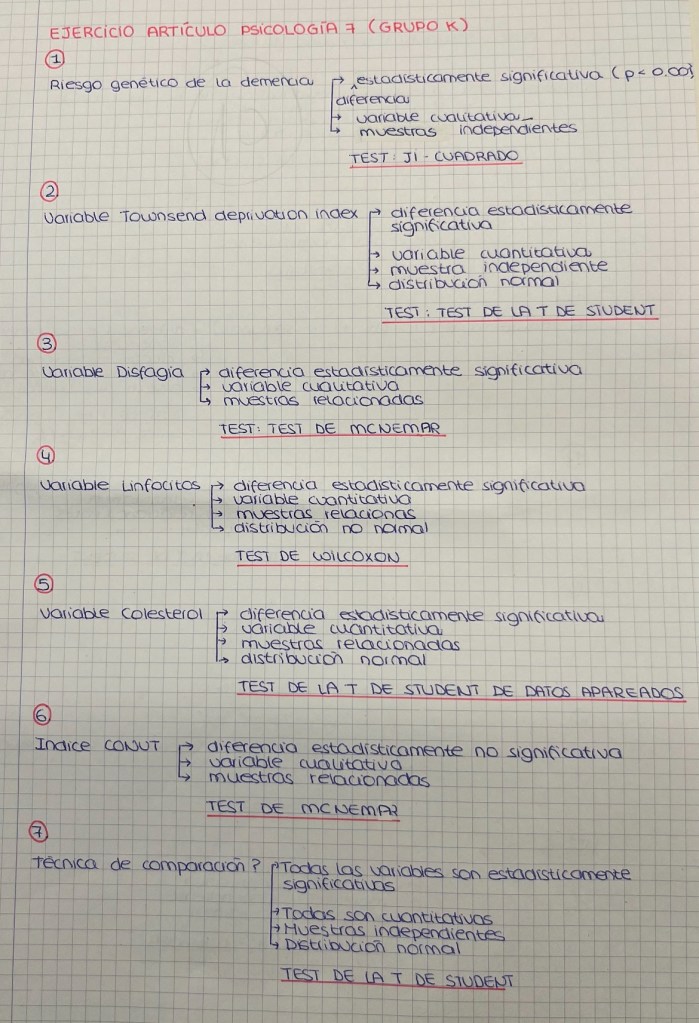 EJERCICIO ARTÍCULO PSICOLOGÍA 7 (GRUPO K)
1
Riesgo genético de la demencia → estadísticamente significativa (p < 0.001
diferencia
→ variable cualitativa
→ muestras independientes
TEST: JI-CUADRADO
2
Variable Townsend deprivation index → diferencia estadísticamente
significativa
→ variable cuantitativa
→ muestra independiente
→ distribución normal
TEST: TEST DE LA T DE STUDENT
3
Variable Disfagia → diferencia estadísticamente significativa
→ variable cualitativa
→ muestras relacionadas
TEST: TEST DE MCNEMAR
4
Variable Linfocitos → diferencia estadísticamente significativa
→ variable cuantitativa
→ muestras relacionas
→ distribución no normal
TEST DE WILCOXON
5
Variable Colesterol → diferencia estadísticamente significativa
→ variable cuantitativa
→ muestras relacionadas
→ distribución normal
TEST DE LA T DE STUDENT DE DATOS APAREADOS
6
Indice CONUT → diferencia estadísticamente no significativa
→ variable cualitativa
→ muestras relacionadas
TEST DE MCNEMAR
7
Técnica de comparación? → Todas las variables son estadísticamente
significativas
→ Todas son cuantitativas
→ Muestras independientes
→ Distribución normal
TEST DE LA T DE STUDENT